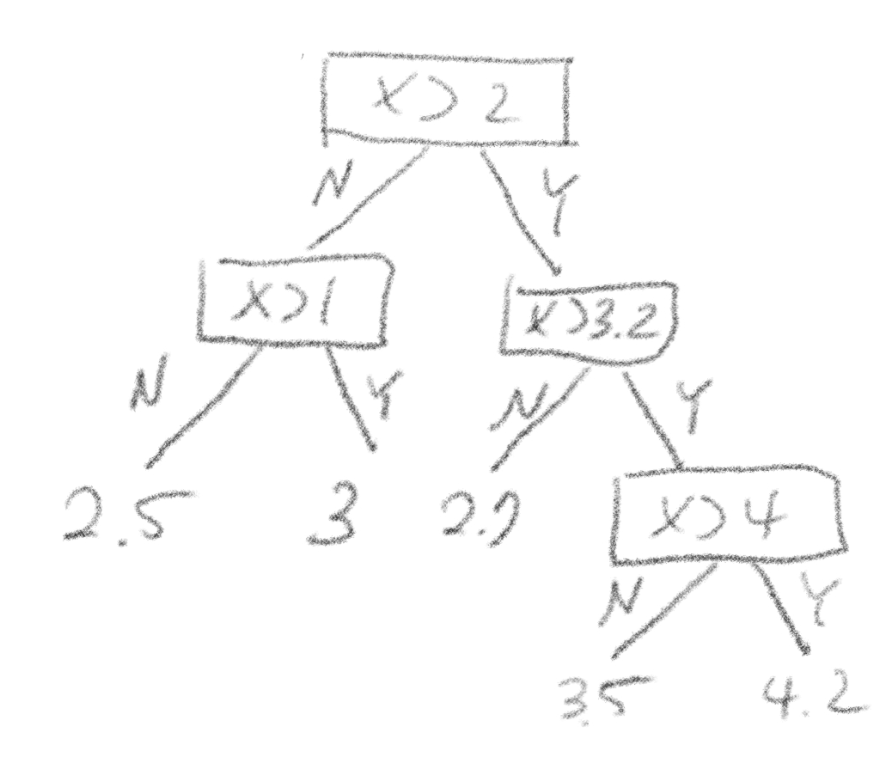 X > 2
N Y
X > 1 X > 3.2
N Y N Y
2.5 3 X > 4
N Y
3.5 4.2